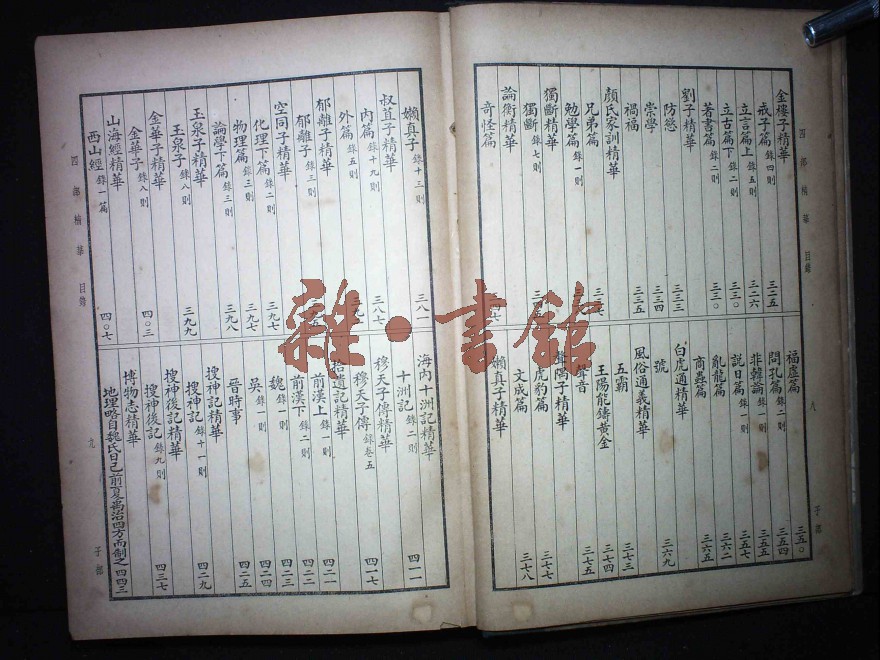 四部精華 目錄
金樓子精華
戒子篇 錄四則 三二五
立言篇上 錄五則 三二六
立古篇下 錄二則 三三〇
著書篇 錄二則 三三〇
劉子精華
防慾 三三三
崇學 三三四
禍福 三三五
顏氏家訓精華
兄弟篇
勉學篇 錄一則
獨斷精華
獨斷 錄七則
論衡精華
奇怪篇
福虛篇 三五〇
問孔篇 錄二則 三五四
非韓論 錄一則 三五五
說日篇 錄一則 三五七
亂龍篇 三六二
商蟲篇 三六五
白虎通精華
號 三六九
風俗通義精華
五霸 三七三
王陽能鑄黃金 三七四
聲音 三七五
聱隅子精華
虎豹篇 三七七
文成篇 三七八
嬾真子精華
八
子部
四部精華 目錄
嬾真子 錄十三則 三八一
叔苴子精華
內篇 錄十九則 三八七
外篇 錄五則
郁離子精華
郁離子 錄三則
空同子精華
化理下篇 錄二則 三九七
物理篇 錄三則 三九七
論學下篇 錄三則 三九八
玉泉子精華
玉泉子 錄八則 三九九
金華子精華
金華子 錄八則 四〇三
山海經精華
西山經 錄一篇 四〇七
海內十洲記精華
十洲記 錄二則 四一一
穆天子傳精華
穆天子傳 錄卷五 四一七
拾遺記精華
前漢上 錄一則 四二一
前漢下 錄二則 四二二
魏 錄二則 四二四
吳 錄一則 四二四
晉時事 四二五
搜神記精華
搜神記 錄十一則 四二九
搜神後記精華
搜神後記 錄九則 四三七
博物志精華
地理略自魏氏日已前夏禹治四方而制之 四四三
九
子部
雜·書館